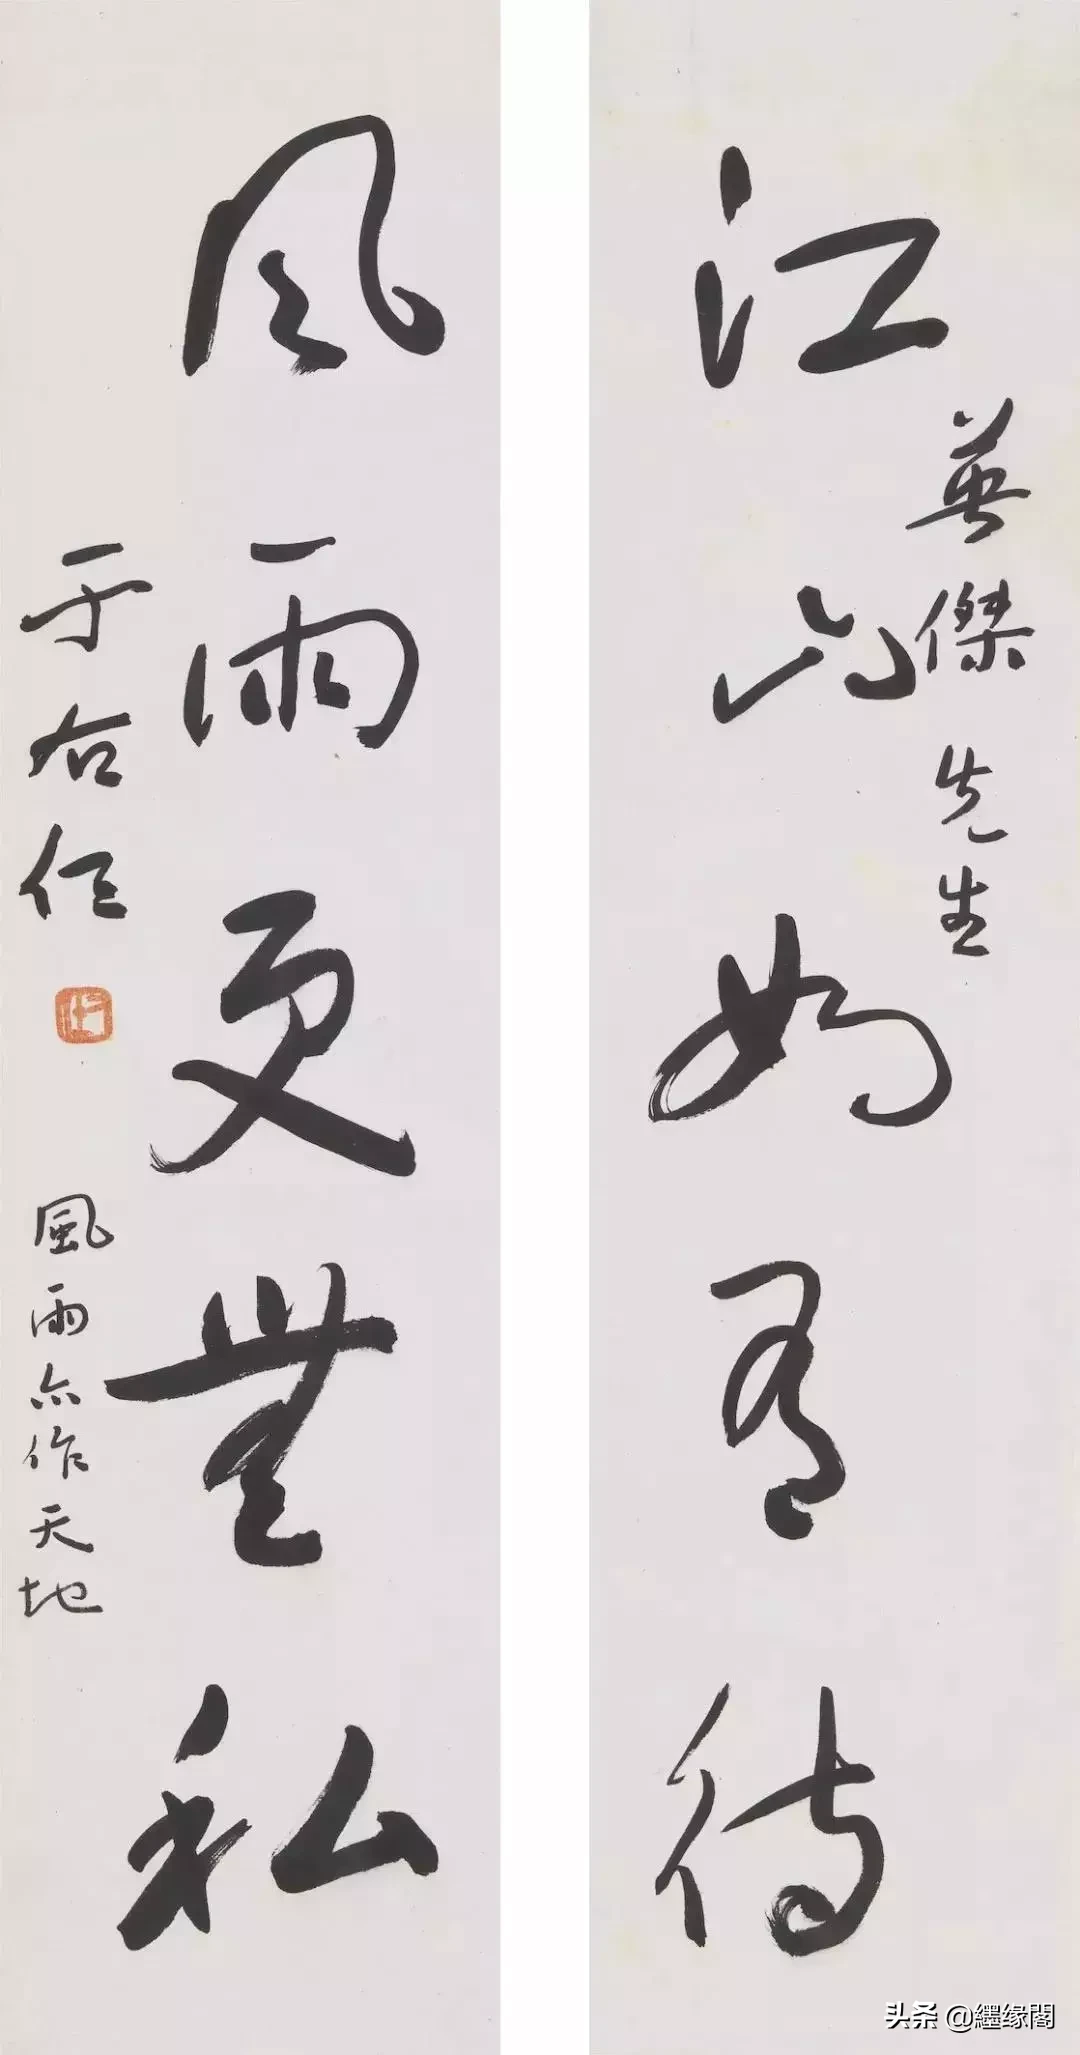 江山如有待
英傑先生
風雨更無私
于右任
風雨亦作天地
头条 @纆缘閣